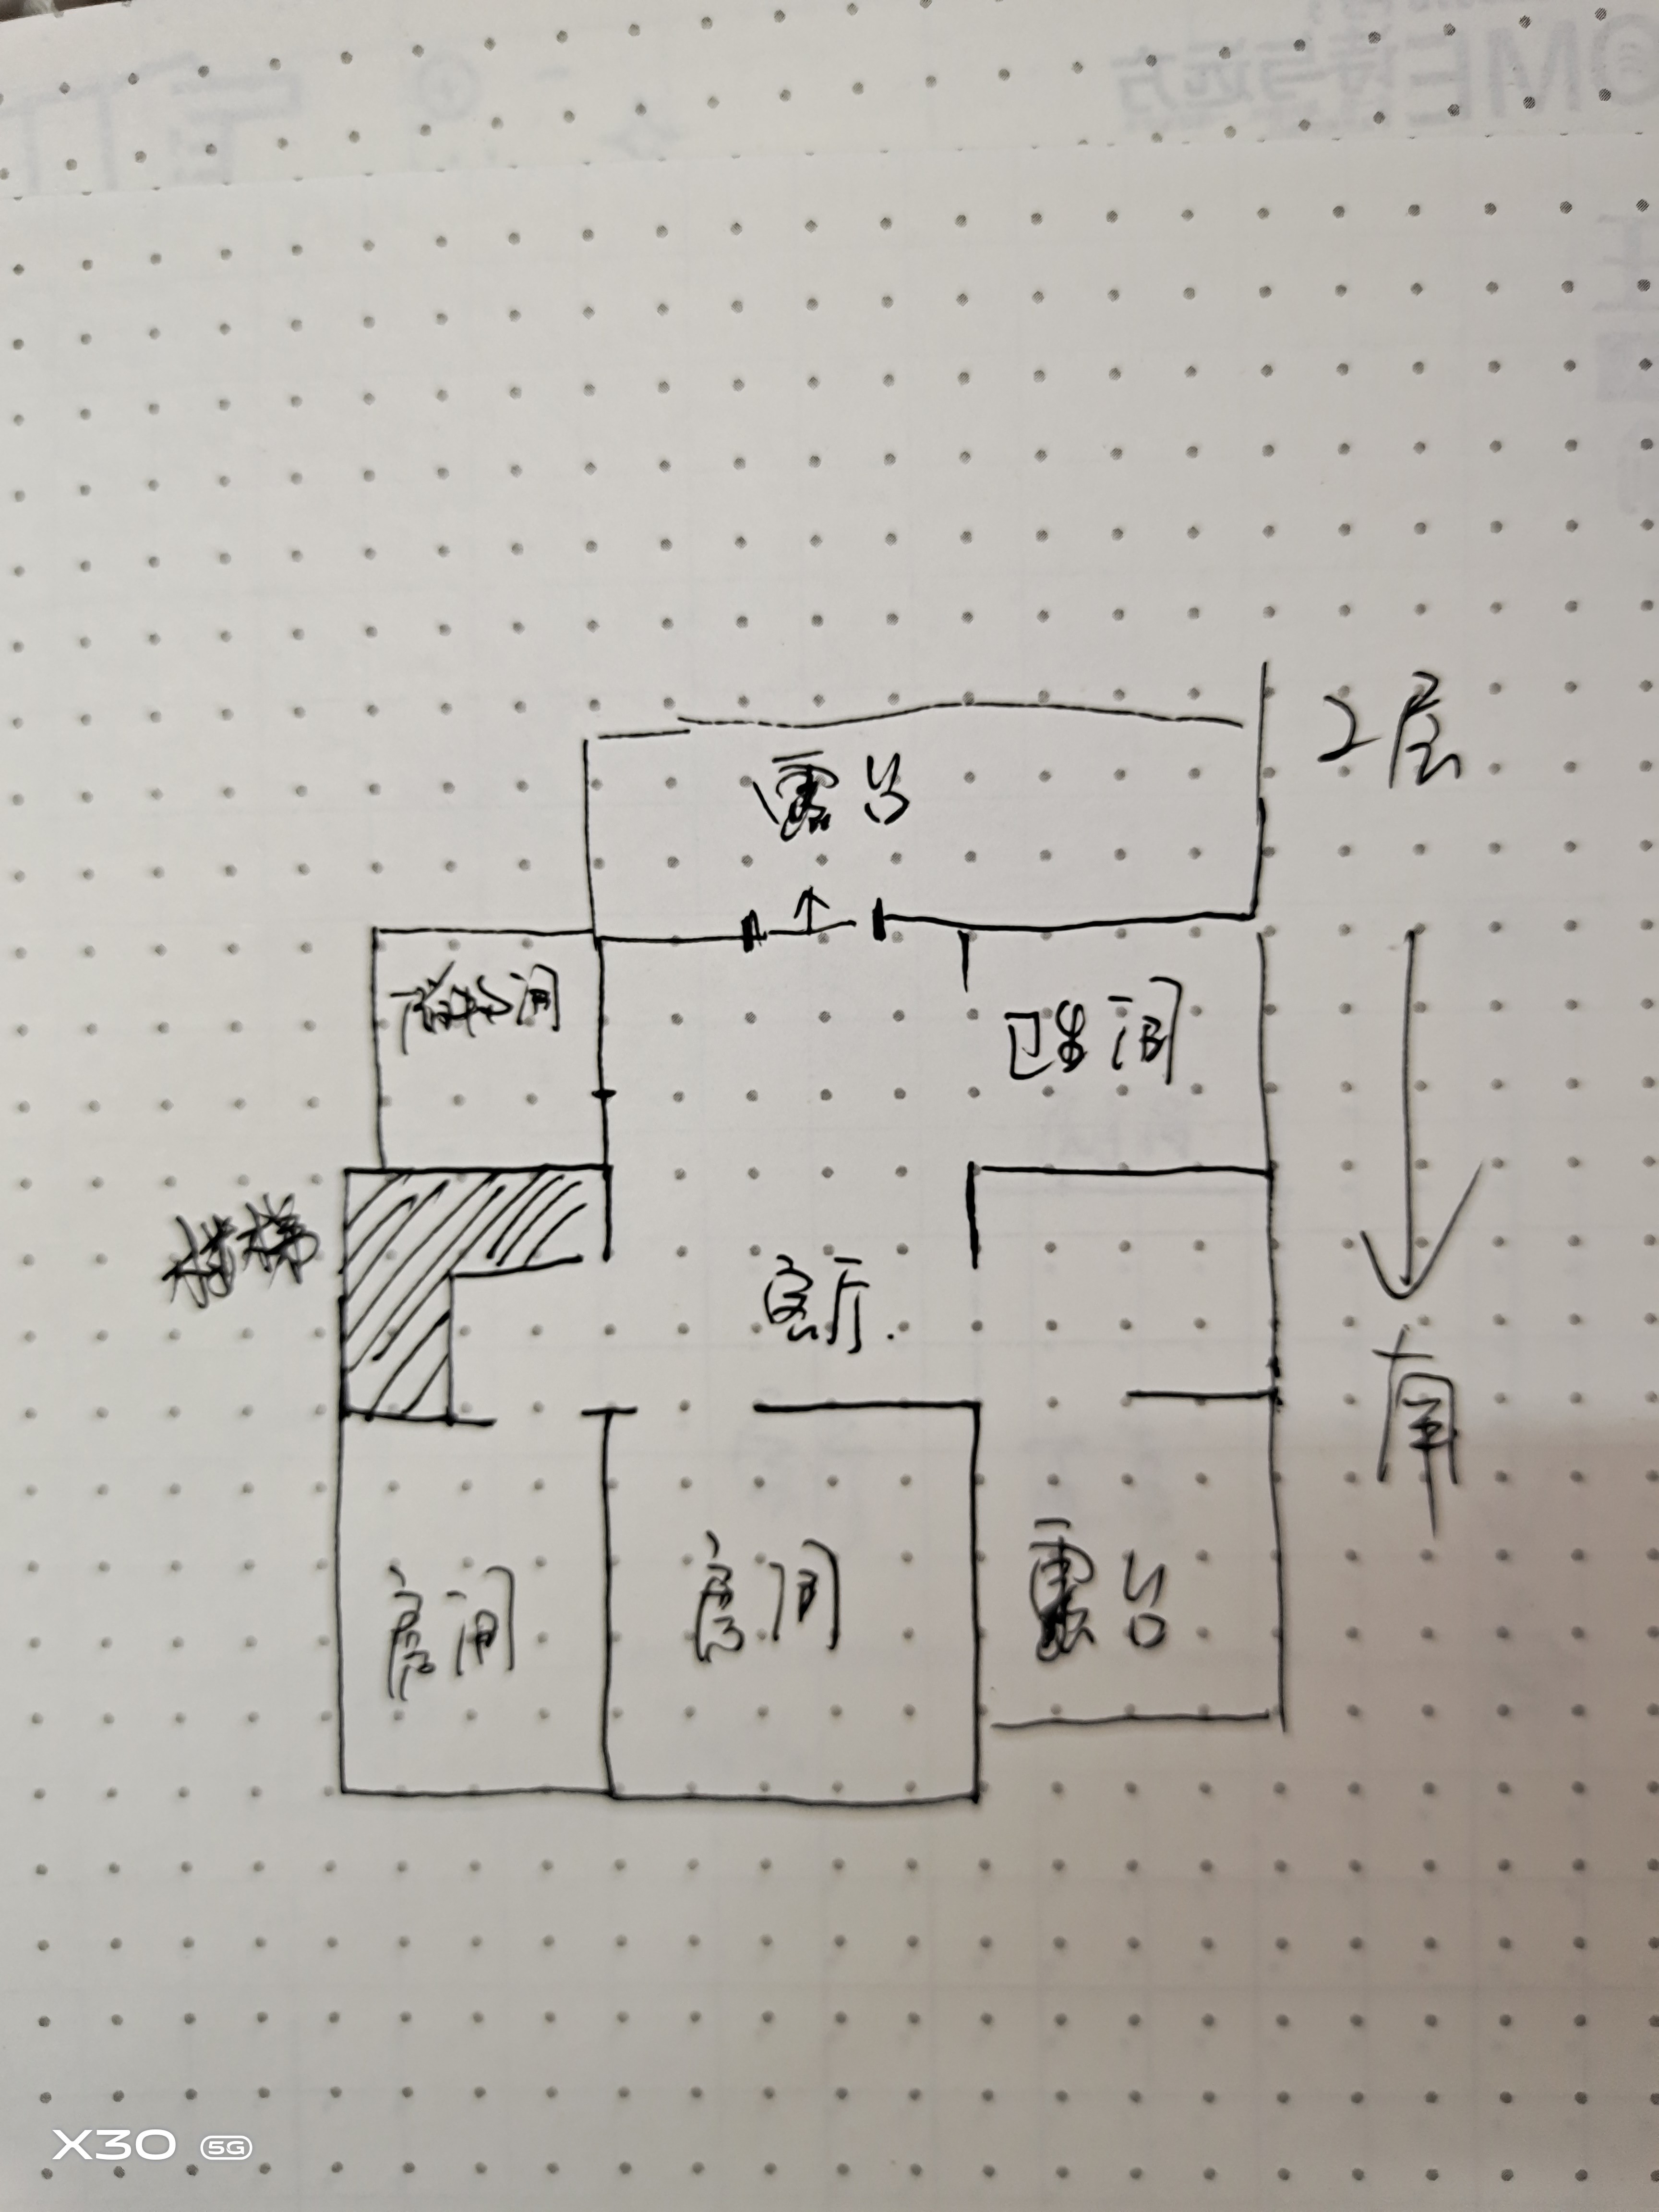 2层
露台
卫生间
楼梯
客厅
南
房间
房间
露台
X30 5G